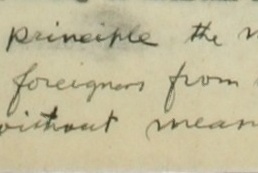 principle the
foreigners from
without mean